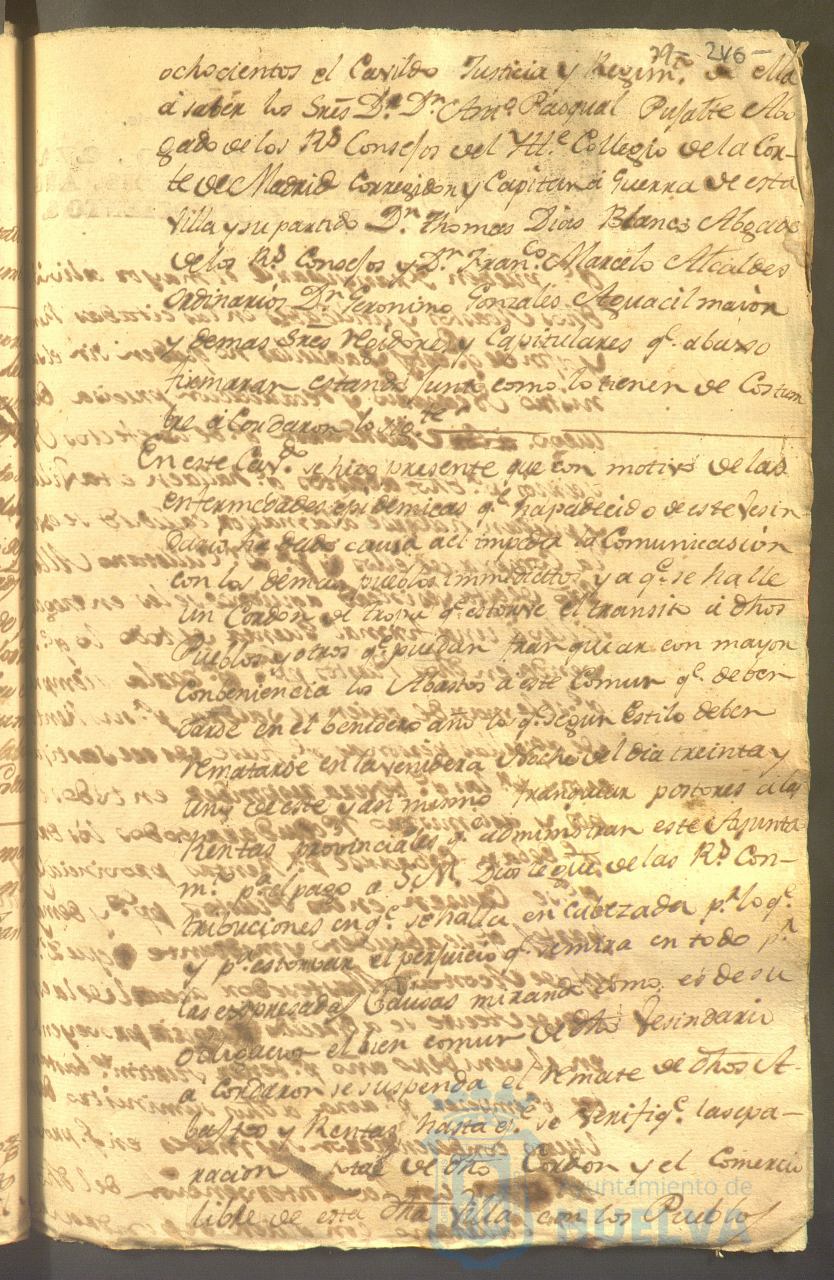 79- 246-
ochocientos el Cavildo Justicia y Regim.to de ella
a saber los Sres Dr. Dn Ant.o Pasqual Pusalte Abo-
gado de los R.s Consejos del Ytt.e Collegio de la Cor-
te de Madrid Corregidor y Capitan á Guerra de esta
Villa y su partido Dn. Thomas Dias Blanco Abogado
de los R.s Consejos y Dn. Fran.co Marcelo Alcaldes
Ordinarios Dn Geronimo Gonzales Aguacil maior
y demas Sres Regidores y Capitulares q.e abaxo
firmaran estando junto como lo tienen de Costum
bre acordaron lo sig.te
En este Cav.do se hizo presente que con motivo de las
enfermedades epidemicas q.e ha padecido de este Vesin
dario ha dado causa a el impedia la Comunicasión
con los demas pueblos immediatos y a q.e se halle
un Cordon de tropa q.e estorve el transito á dhos
Pueblos y otros q.e puedan franquear con mayor
conbeniencia los Abastos á este Comun q.e deben
darse en el benidero año lo q.e segun Estilo deben
rematarse en la venidera Noche del dia treinta y
uno de este y asi mismo franquear postores á las
Rentas provinciales q.e administran este Ayunta
m.to p.a el pago a S. M. Dios le gue de las R.s Con-
tribuciones en q.e se halla encabezada p.r lo q.e
y p.a estorvar el perjuicio q.e se mira en todo p.r
las expresadas Causas mirando como es de su
obligacion el bien comun de dho Vesindario
acordaron se suspenda el remate de dhos A-
bastos y Rentas hasta q.e se verifiq.e la sepa-
racion de dho Cordon y el Comercio
libre de esta dha Villa con los Pueblos
Ayuntamiento de
HUELVA